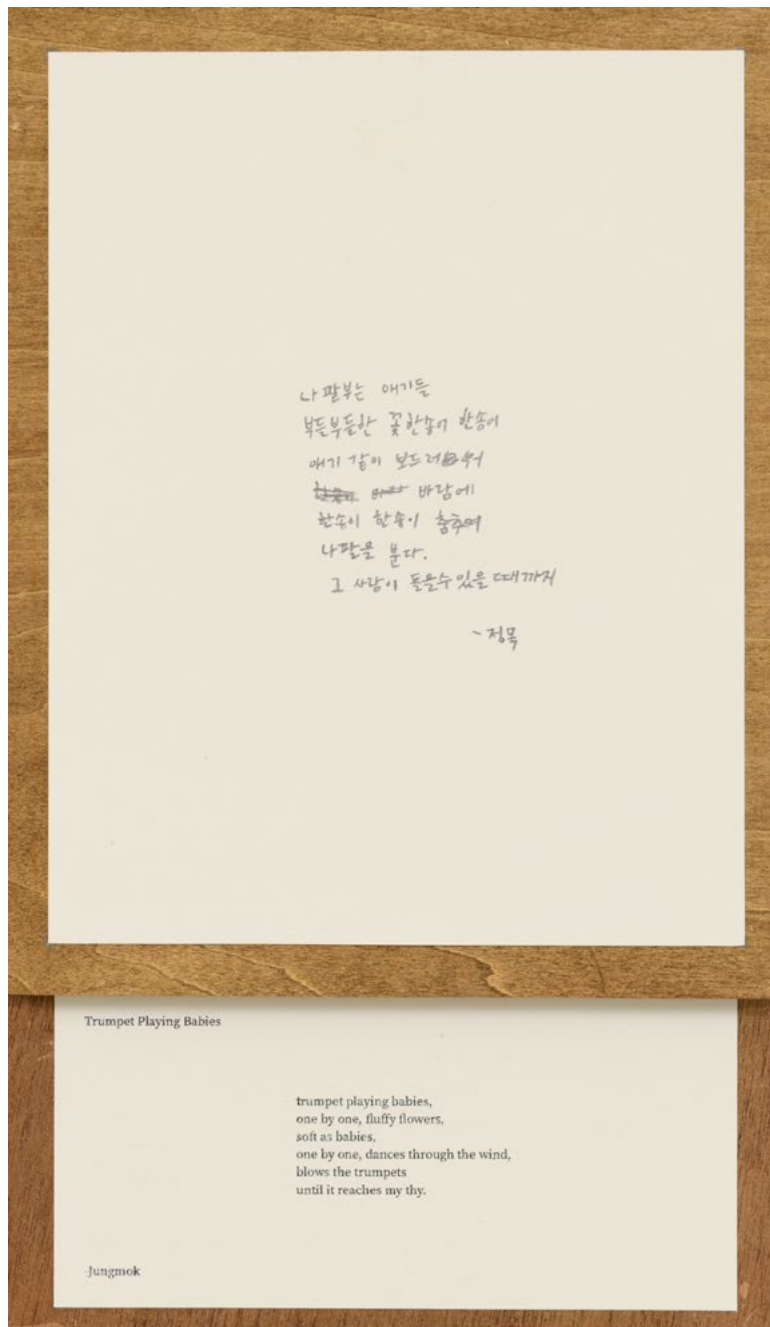 나팔부는 애기들
부든부들한 꽃한송이 한송이
애기 같이 보드러워
바람에
한송이 한송이 춤추며
나팔을 분다.
그 사람이 들을수있을때까지
- 정목
Trumpet Playing Babies
trumpet playing babies,
one by one, fluffy flowers,
soft as babies,
one by one, dances through the wind,
blows the trumpets
until it reaches my thy.
-Jungmok